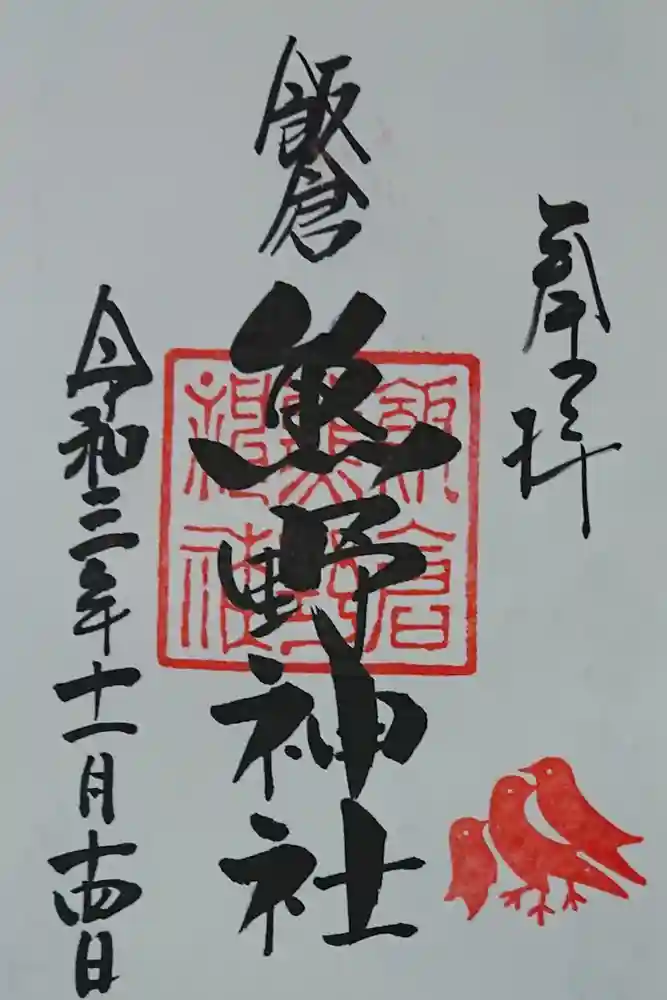 奉拝
飯倉
熊野神社
飯倉
熊野
神社
令和三年十一月十四日